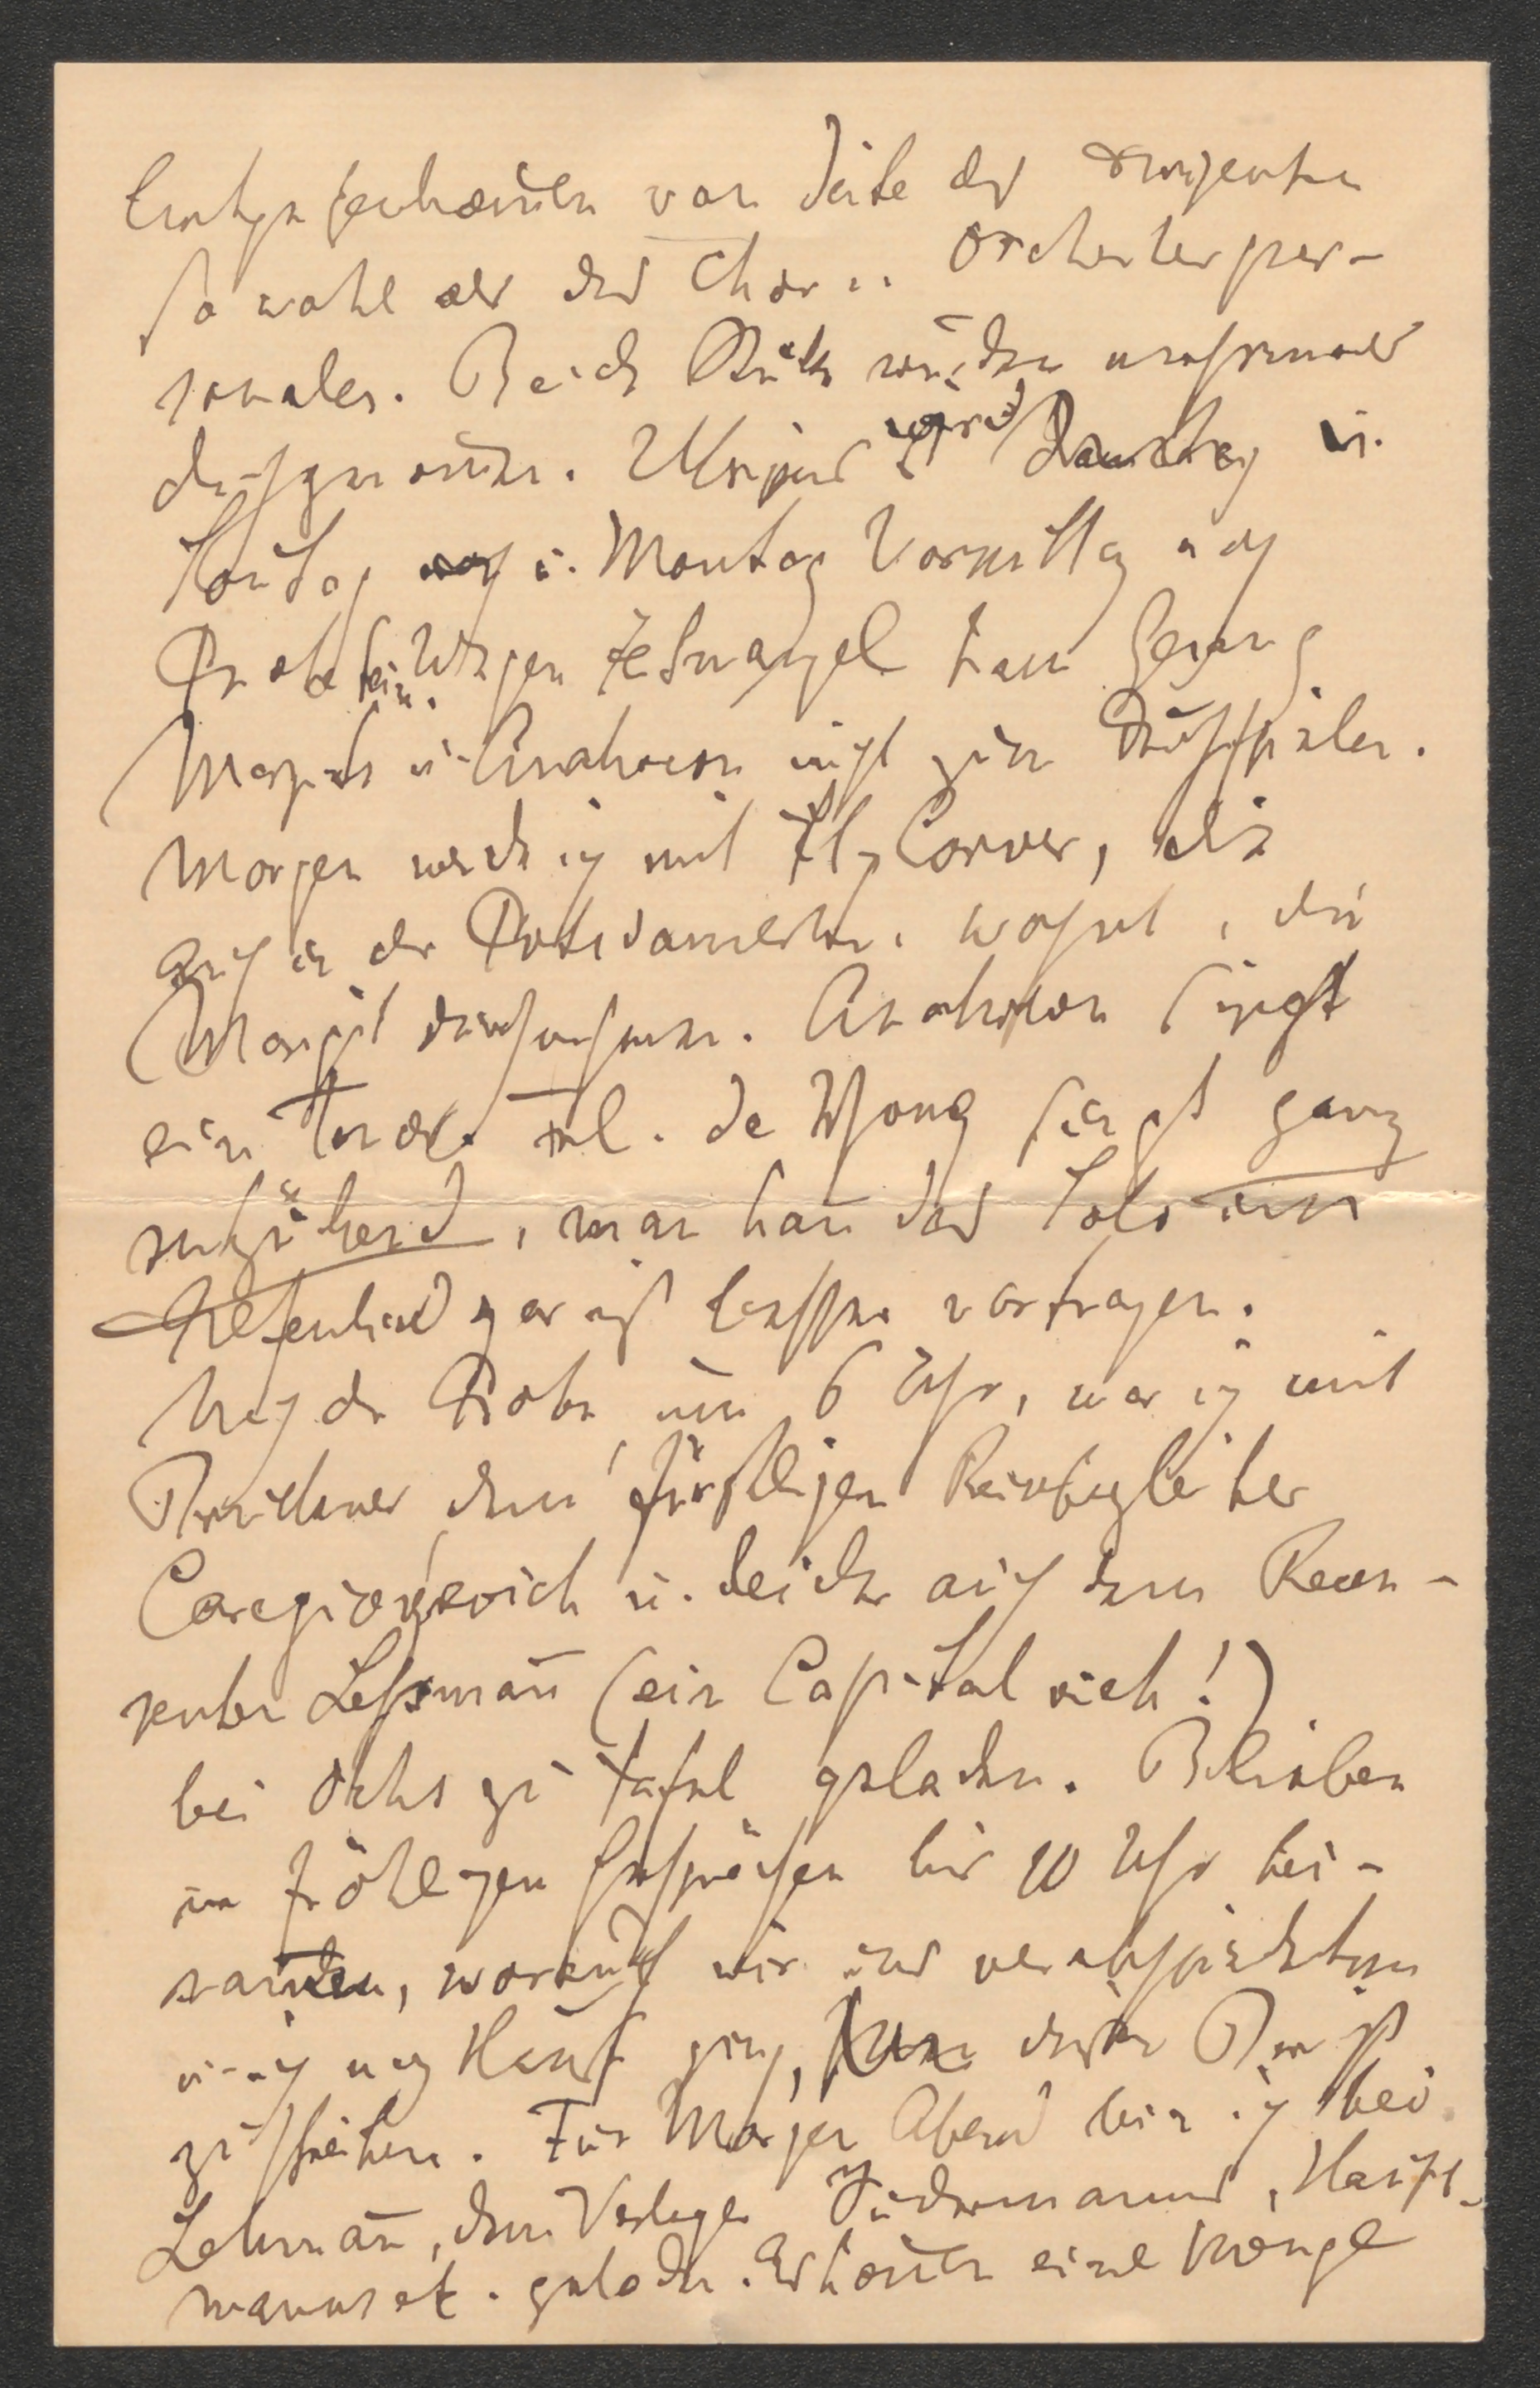 Entgegenkom̅en von Seite des Dirigenten
sowohl als des Chor u. Orchesterper-
sonales. Beide Stücke wurden mehrmals
durchgenom̅en. Übrigens wird Samstag u.
Son̅tag u. Montag Vormittag noch
Probe sein. Wegen Zeitmangel kam Gesang
Margits u. Anakreon nicht zum Durchspielen.
Morgen werde ich mit Frl. Corver, die
auch in der Potsdamerstr. wohnt, die
Margit durchnehmen. Anakreon singt
ein Tenor. Frl. de Jong singt ganz
entzückend, man kan̅ das Solo im
Elfenlied gar nicht besser vortragen.
Nach der Probe, um 6 Uhr, war ich mit
Bruckner dem fürstlichen Reisebegleiter
Caragiorgevich u. leider auch dem Recen-
senten Lessman̅ (ein Capitalvieh!)
bei Ochs zu Tafel geladen. Blieben
in fröhlichen Gesprächen bis 10 Uhr bei-
sam̅en, worauf wir uns verabschiedeten
u. ich nach Hause ging, diesen Brief
zu schreiben. Für Morgen Abend bin ich bei
Lehman̅, dem Verleger Sudermanns, Haupt-
manns et. geladen. Es kom̅en eine Menge